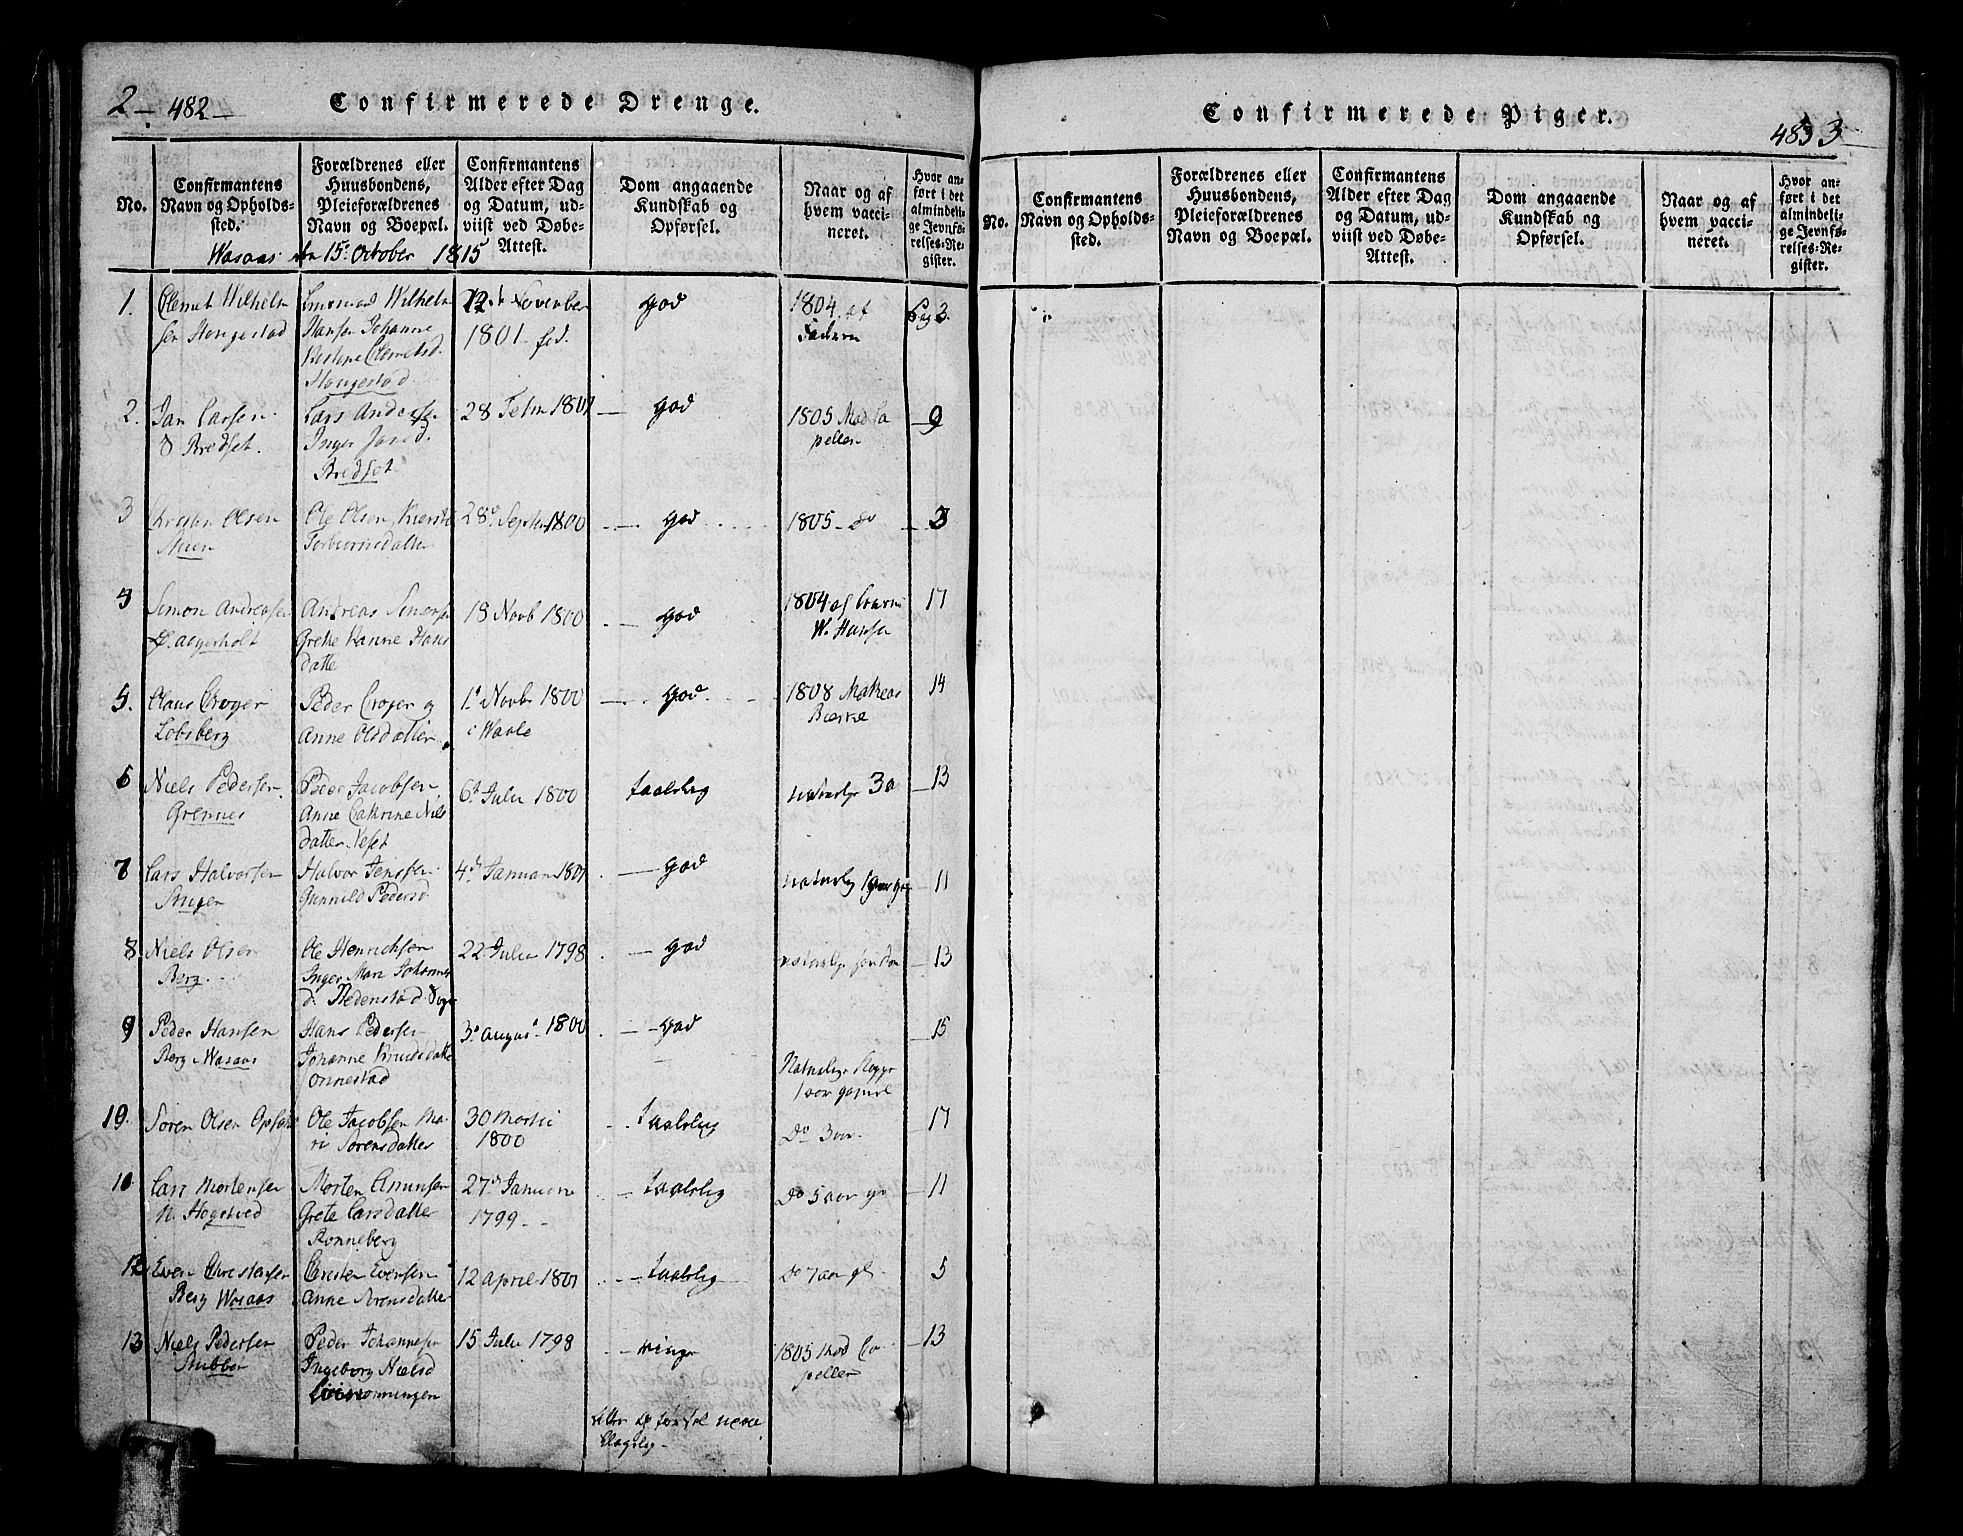 2 - 482 -
Confirmerede Drenge.
No.
Confirmantens
Navn og Opholds-
sted.
Forældrenes eller
Huusbondens,
Pleieforældrenes
Navn og Boepæl.
Confirmantens
Alder efter Dag
og Datum, ud-
viist ved Døbe-
Attest.
Dom angaaende
Kundskab og
Opførsel.
Naar og af
hvem vacci-
neret.
Hvor an-
ført i det
almindeli-
ge Jevnfø-
relses-Re-
gister.
Wasaas den 15de October 1815
1.
Clemet Wilhelm
sen Hougestad
Wilhelm
Hansen Johanne
Clemetsd.
Hougestad
12 November
1801 fød.
god
1804 af
Pag 3.
2.
Jan Larsen
Bredset.
Lars Anders
Inger Jansd.
Bredset
28 Febr 1801
god
1805 Mad Ca
pellen
9
3
Christen Olsen
Muen
Ole Olsen, Kierste
Torbiørnsdatter
28de Septbr 1800
god
1805 do
3
4
Simon Andreasen
Andreas Simonsen
Grethe Hans
datte
18 Novb 1800
god
1804 af
W. Hansen
17
5.
Claus Crøger
Lobsberg
Peder Crøger og
Anne Olsdatter
1. Novbr 1800
i Waale
god
1808 Matheas
Bierke
14
6
Niels Pedersen
Gremnes
Peder Jacobsen
Anne Cathrine Niels
datter Neset
6t Julii 1800
taalelig
naturlig 3 a
13
7
Lars Halvorsen
Halvor Jenssen
Gunnild Pedersd
4de Januari 1801
god
naturlig
11
8
Niels Olsen
Berg
Ole Henrichsen
Inger Mari Johannes
d. Hedenstad
22 Julii 1798
god
naturlige
13
9
Peder Hansen
Berg Wasaas
Hans Pedersen
Johanne Knudsdatte
Onnestad
3. August 1800
god
Naturlige Kopper
1 aar gammel
15
10.
Søren Olsen
Ole Jacobsen Ma-
ri Sørensdatter
30 Martii
1800
taalelig
Do 3 aar
17
11
Lars Mortensen
N. Hogstved
Morten Amunsen
Grete Larsdatter
Ronneberg
27de Januarii
1799
taalelig
Do 5 aar
11
12
Even Christensen
Berg Wasaas
Christen Evensen
Anne Arensdatter
12 April 1801
taalelig
Do 7 aar
5
13
Niels Pedersen
Stubber
Peder Johannesen
Ingeborg Nielsd
15 Julii 1798
ringe
1805 Mad Ca
pellen
13
Confirmerede Piger.
483 3
No.
Confirmantens
Navn og Opholds-
sted.
Forældrenes eller
Huusbondens,
Pleieforældrenes
Navn og Boepæl.
Confirmantens
Alder efter Dag
og Datum, ud-
viist ved Døbe-
Attest.
Dom angaaende
Kundskab og
Opførsel.
Naar og af
hvem vacci-
neret.
Hvor an-
ført i det
almindeli-
ge Jevnfø-
relses-Re-
gister.